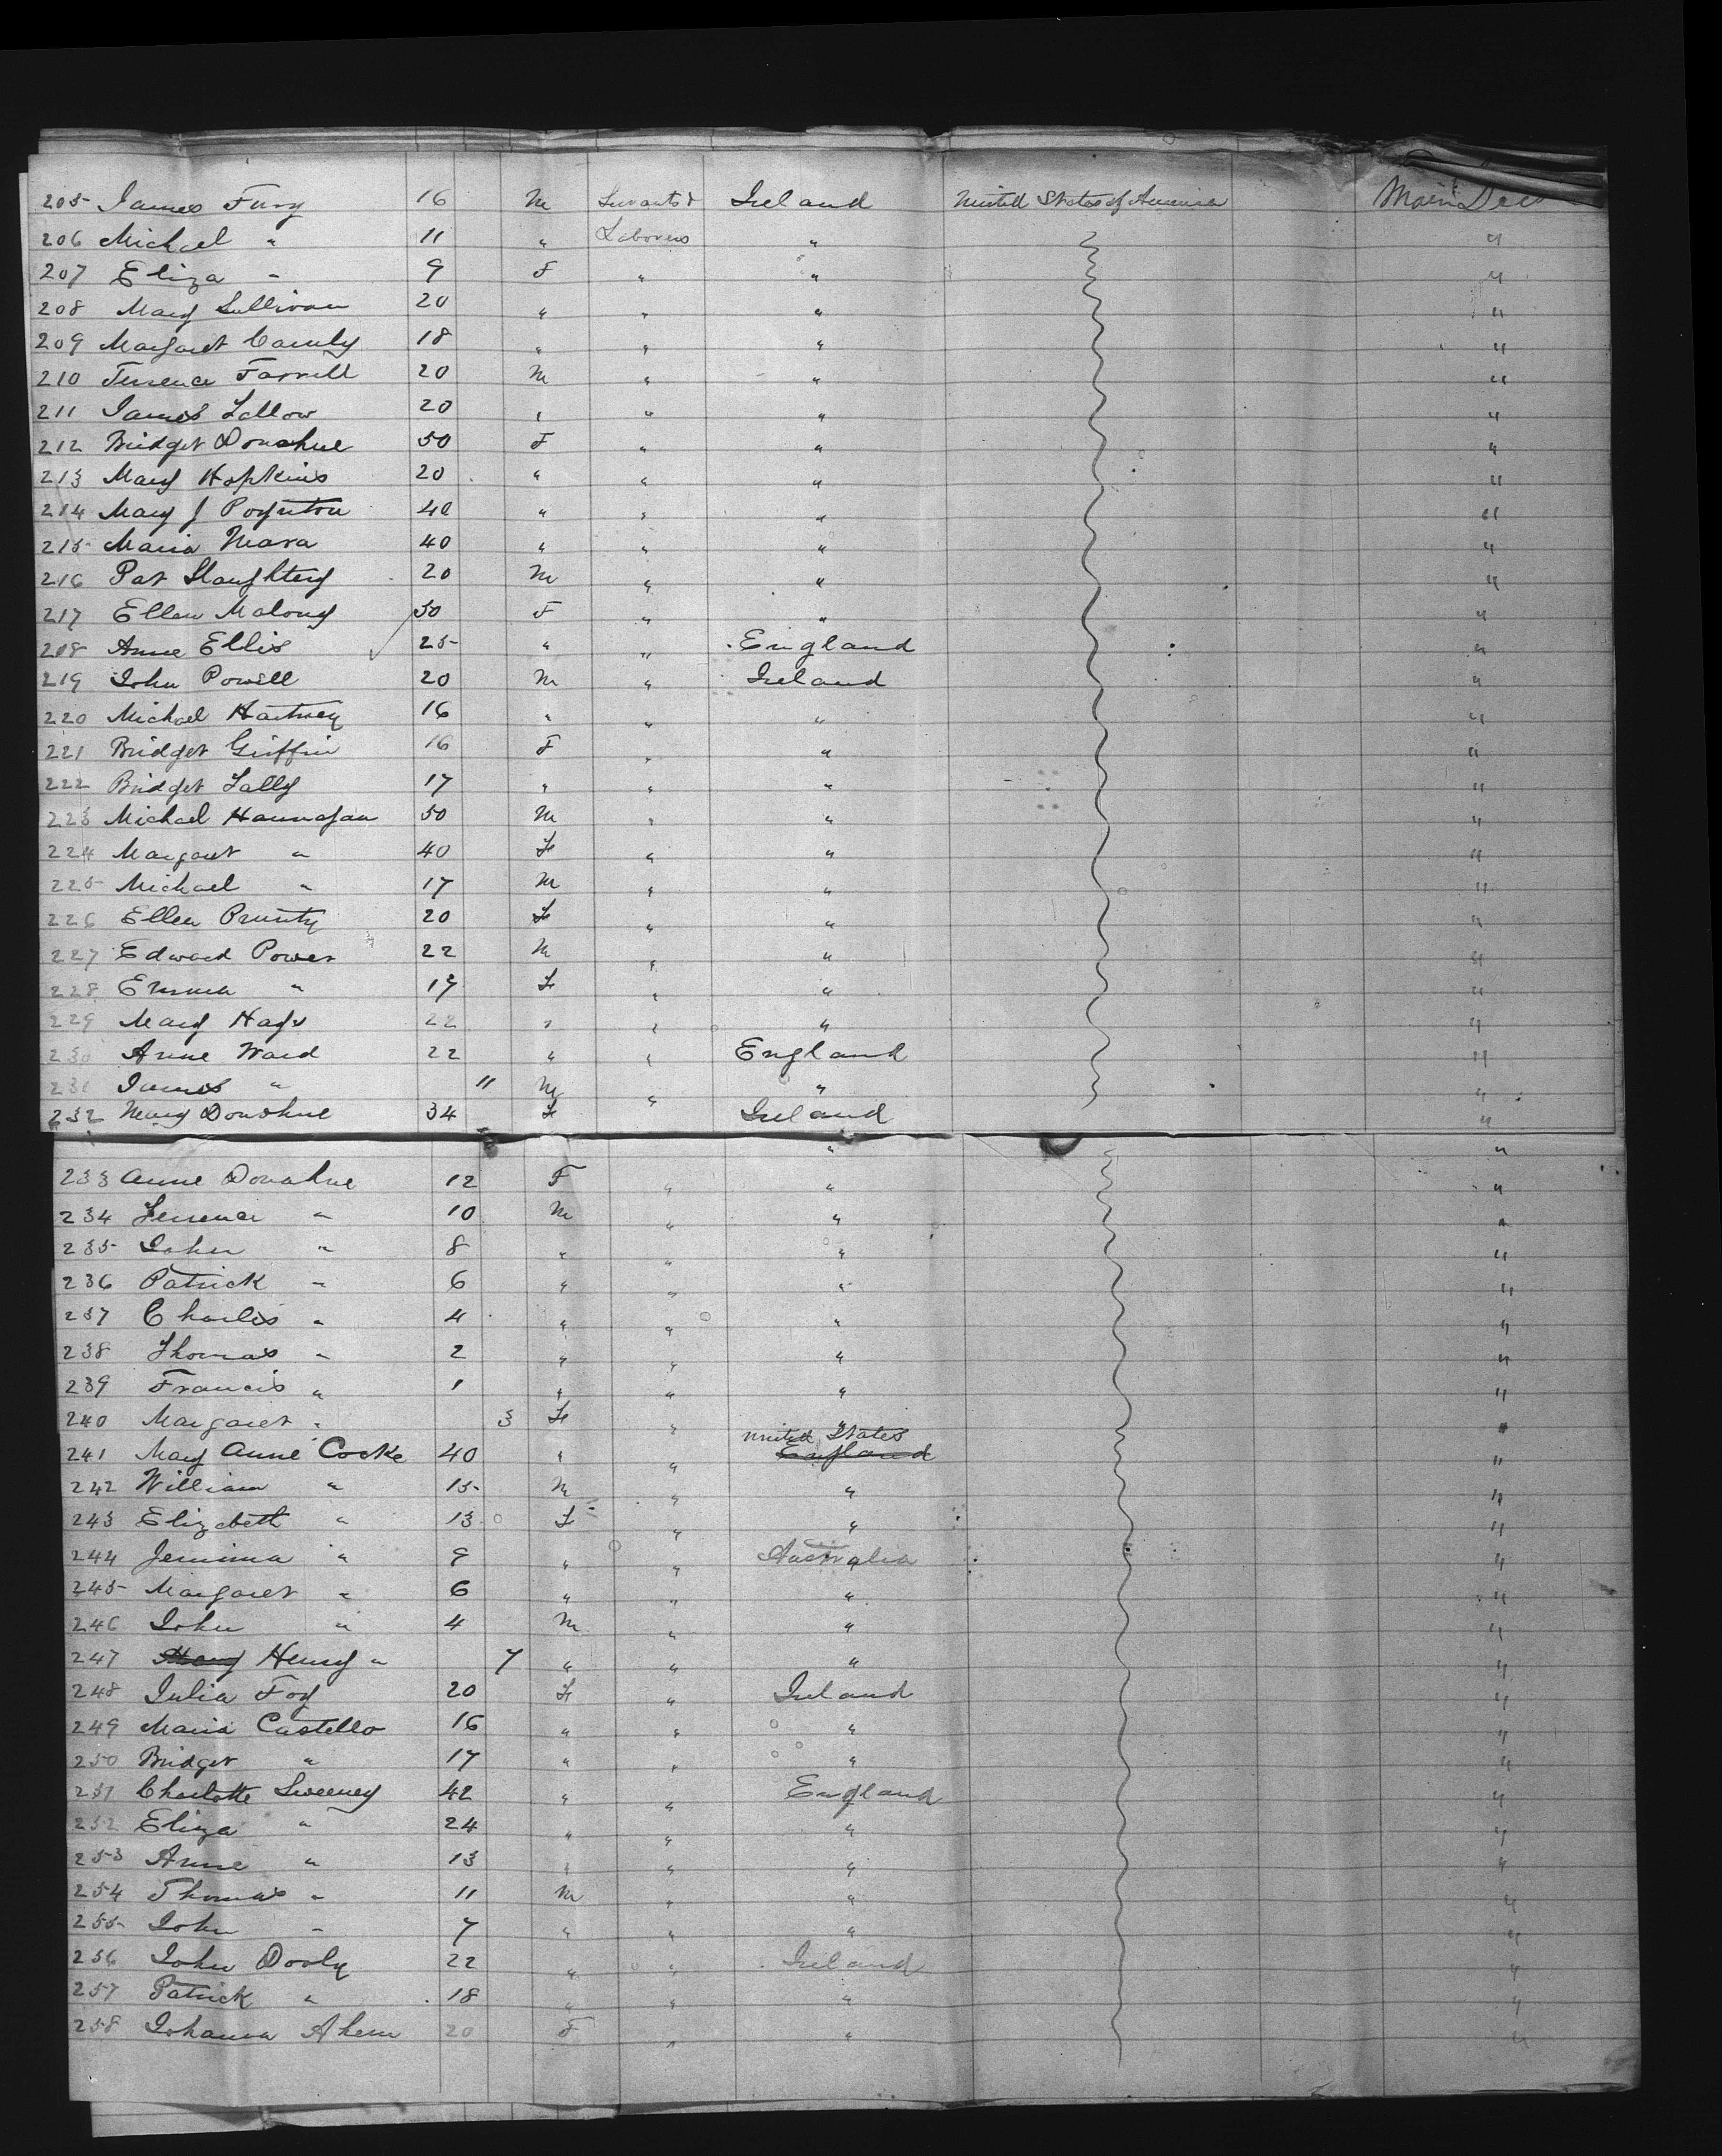 205 James Fury 16 M Servants & Ireland United States of America Main Deck
206 Michael " 11 " Laborers " "
207 Eliza " 9 F " " "
208 Mary Sullivan 20 " " " "
209 Margaret 18 " " " "
210 Terrence Farrell 20 M " " "
211 James Lallow 20 " " " "
212 Bridget Donahue 50 F " " "
213 Mary Hopkins 20 " " " "
214 Mary J Poynton 40 " " " "
215 Maria Mara 40 " " " "
216 Pat Slaughtery 20 M " " "
217 Ellen Malony 30 F " " "
218 Anne Ellis 25 " " England "
219 John Powell 20 M " Ireland "
220 Michael Hartney 16 " " " "
221 Bridget Griffin 16 F " " "
222 Bridget Lally 17 " " " "
223 Michael Hannagan 50 M " " "
224 Margaret " 40 F " " "
225 Michael " 17 M " " "
226 Ellen Prunty 20 F " " "
227 Edward Power 22 M " " "
228 Emma " 17 F " " "
229 Mary Hays 22 " " " "
230 Anne Ward 22 " " England "
231 James " 11 M " " "
232 Mary Donahue 34 F Ireland "
" "
233 Anne Donahue 12 F " " "
234 Terrence " 10 M " " "
235 John " 8 " " " "
236 Patrick " 6 " " " "
237 Charles " 4 " " " "
238 Thomas " 2 " " " "
239 Francis " 1 " " " "
240 Margaret " 3 F " " "
United States
241 Mary Anne Cooke 40 " " England "
242 William " 15 M " " "
243 Elizabeth " 13 F " " "
244 Jemima " 9 " " Australia "
245 Margaret " 6 " " " "
246 John " 4 M " " "
247 Mary Henry " 7 " " " "
248 Julia Foy 20 F " Ireland "
249 Maria Castello 16 " " " "
250 Bridget " 17 " " " "
251 Charlotte Sweeney 42 " " England "
252 Eliza " 24 " " " "
253 Anne " 13 " " " "
254 Thomas " 11 M " " "
255 John " 7 " " " "
256 John Dooly 22 " " Ireland "
257 Patrick " 18 " " " "
258 Johanna Ahern 20 F " " "